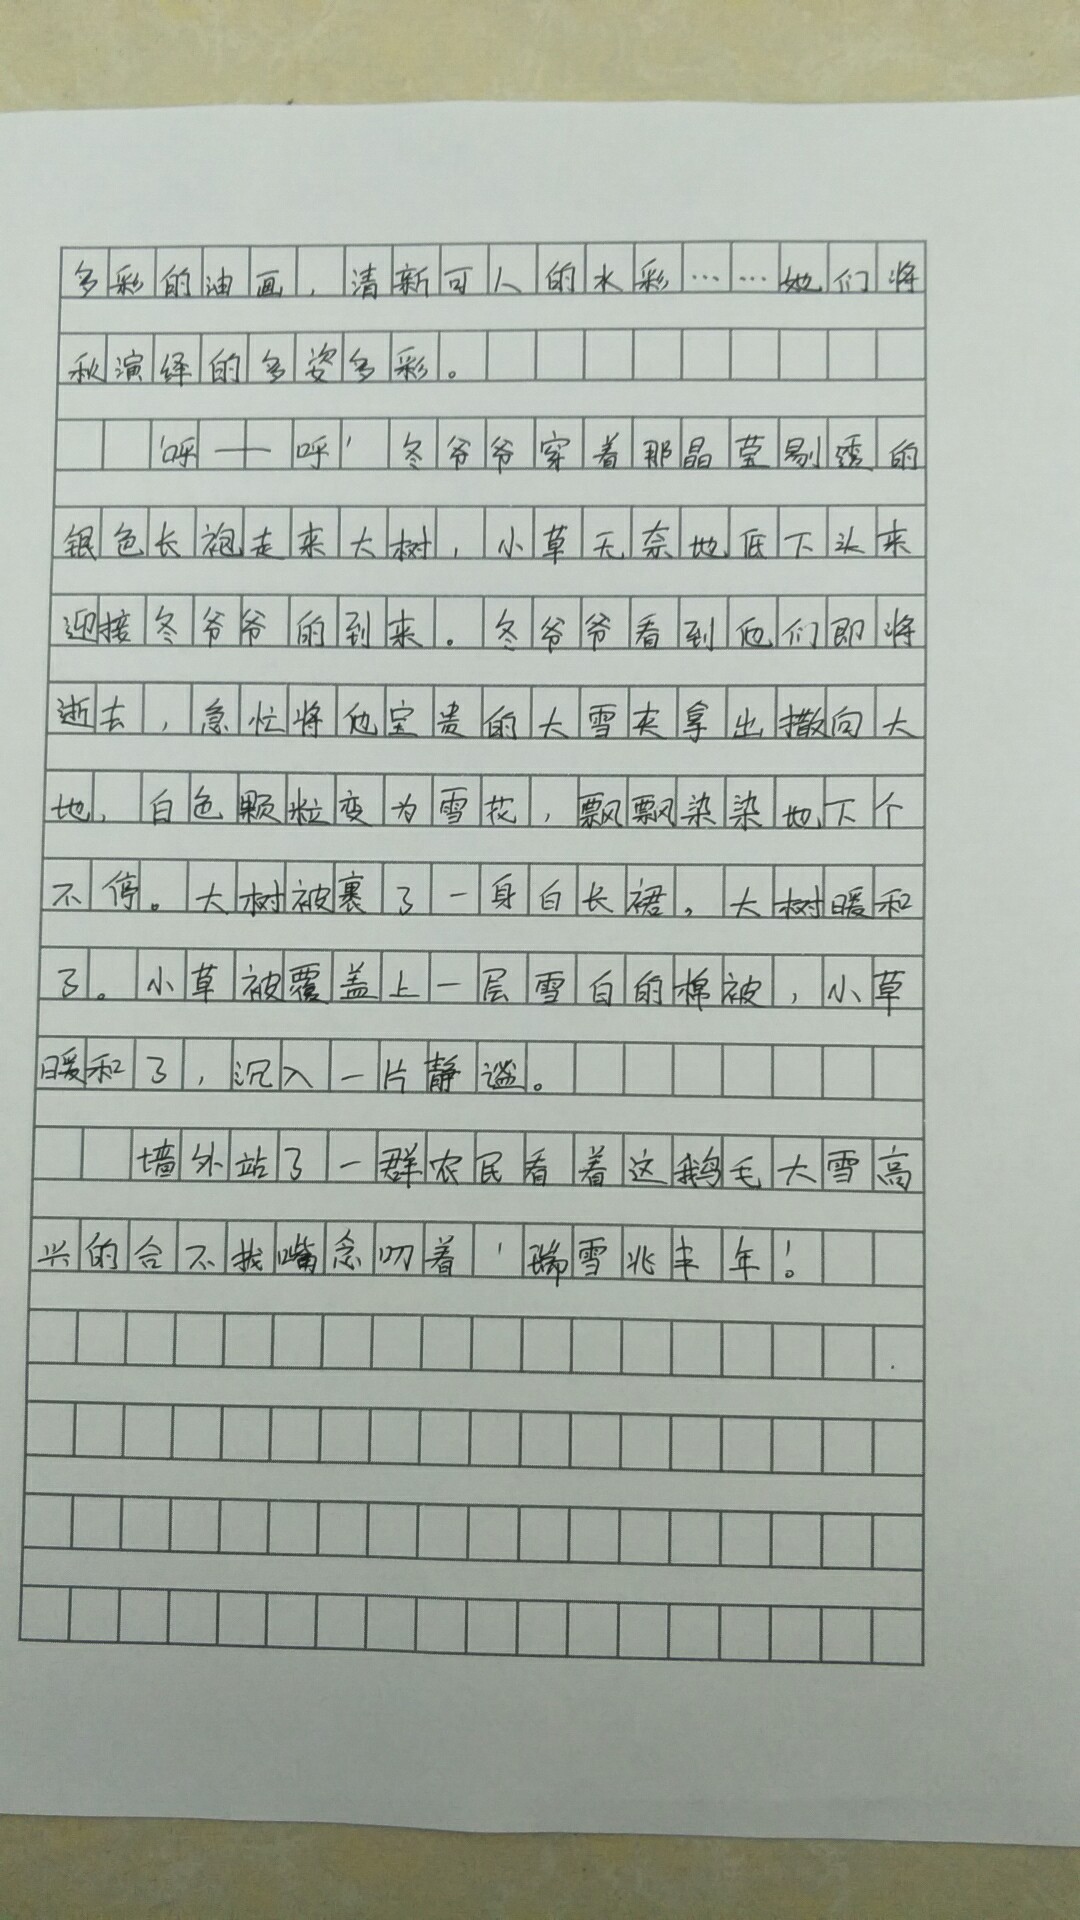 多彩的油画，清新可人的水彩……她们将
秋演绎的多姿多彩。
'呼——呼'冬爷爷穿着那晶莹剔透的
银色长袍走来大树，小草无奈地低下头来
迎接冬爷爷的到来。冬爷爷看到他们即将
逝去，急忙将他宝贵的大雪夹拿出撒向大
地，白色颗粒变为雪花，飘飘染染地下个
不停。大树被裹了一身白长裙，大树暖和
了。小草被覆盖上一层雪白的棉被，小草
暖和了，沉入一片静谧。
墙外站了一群农民看着这鹅毛大雪高
兴的合不拢嘴念叨着'瑞雪兆丰年！